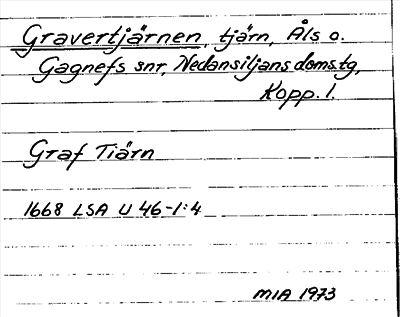 Gravertjärnen, tjärn, Åls o.
Gagnefs snr, Nedansiljans doms.tg,
Kopp. l.
Graf Tiärn
1668 LSA U 46-1:4
MIA 1973